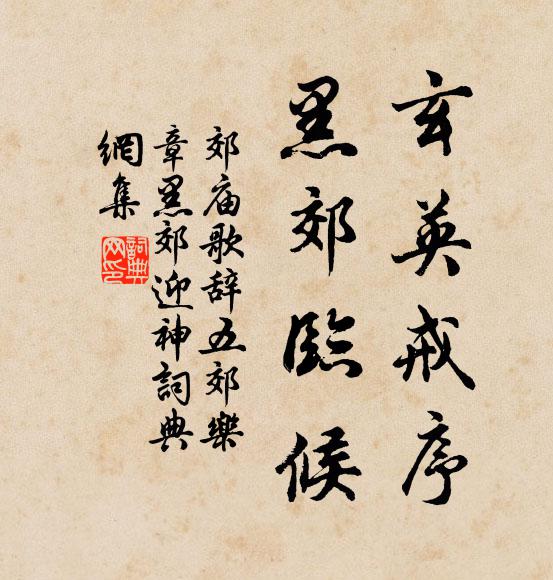 玄英戒序
黑郊臨候
郊庙歌辞五郊樂
章黑郊迎神詞典
網集
詞典網印